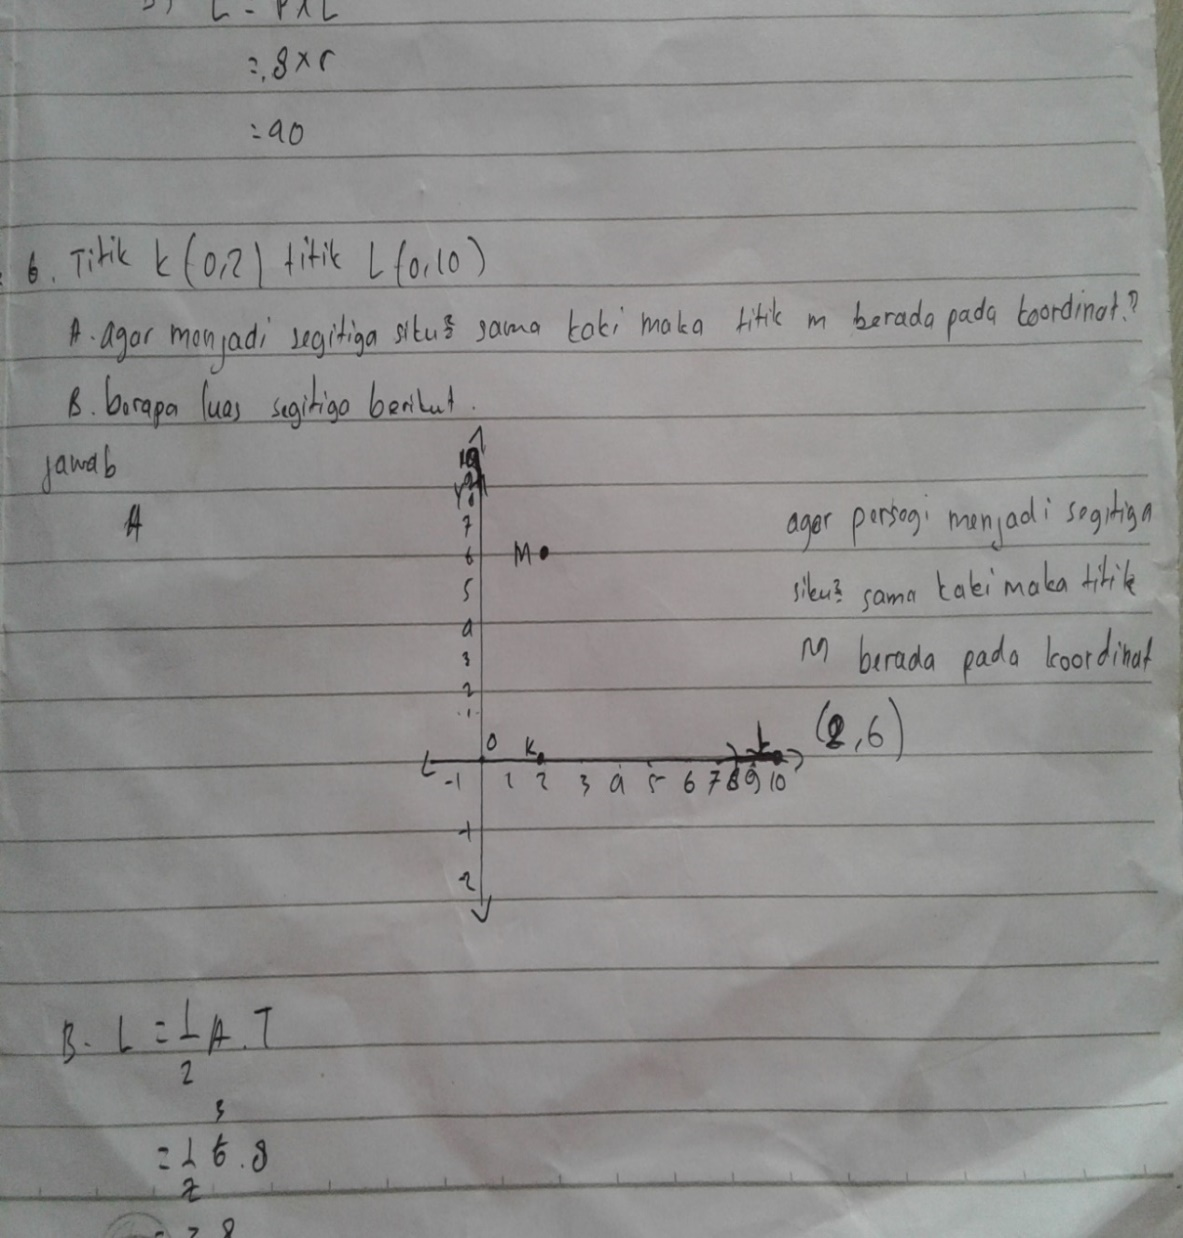 L = P x L
= 8 x 5
= 40
6. Titik k (0,2) titik L (0,10)
A. agar menjadi segitiga siku² sama kaki maka titik m berada pada koordinat?
B. berapa luas segitiga berikut.
jawab
A
10
9
8
7
6 M
5
4
3
2
1
agar persegi menjadi segitiga
siku² sama kaki maka titik
M berada pada koordinat
(2,6)
0 K L
-1 1 2 3 4 5 6 7 8 9 10
-1
-2
B. L = 1/2 A.T
3
= 1/2 6.8